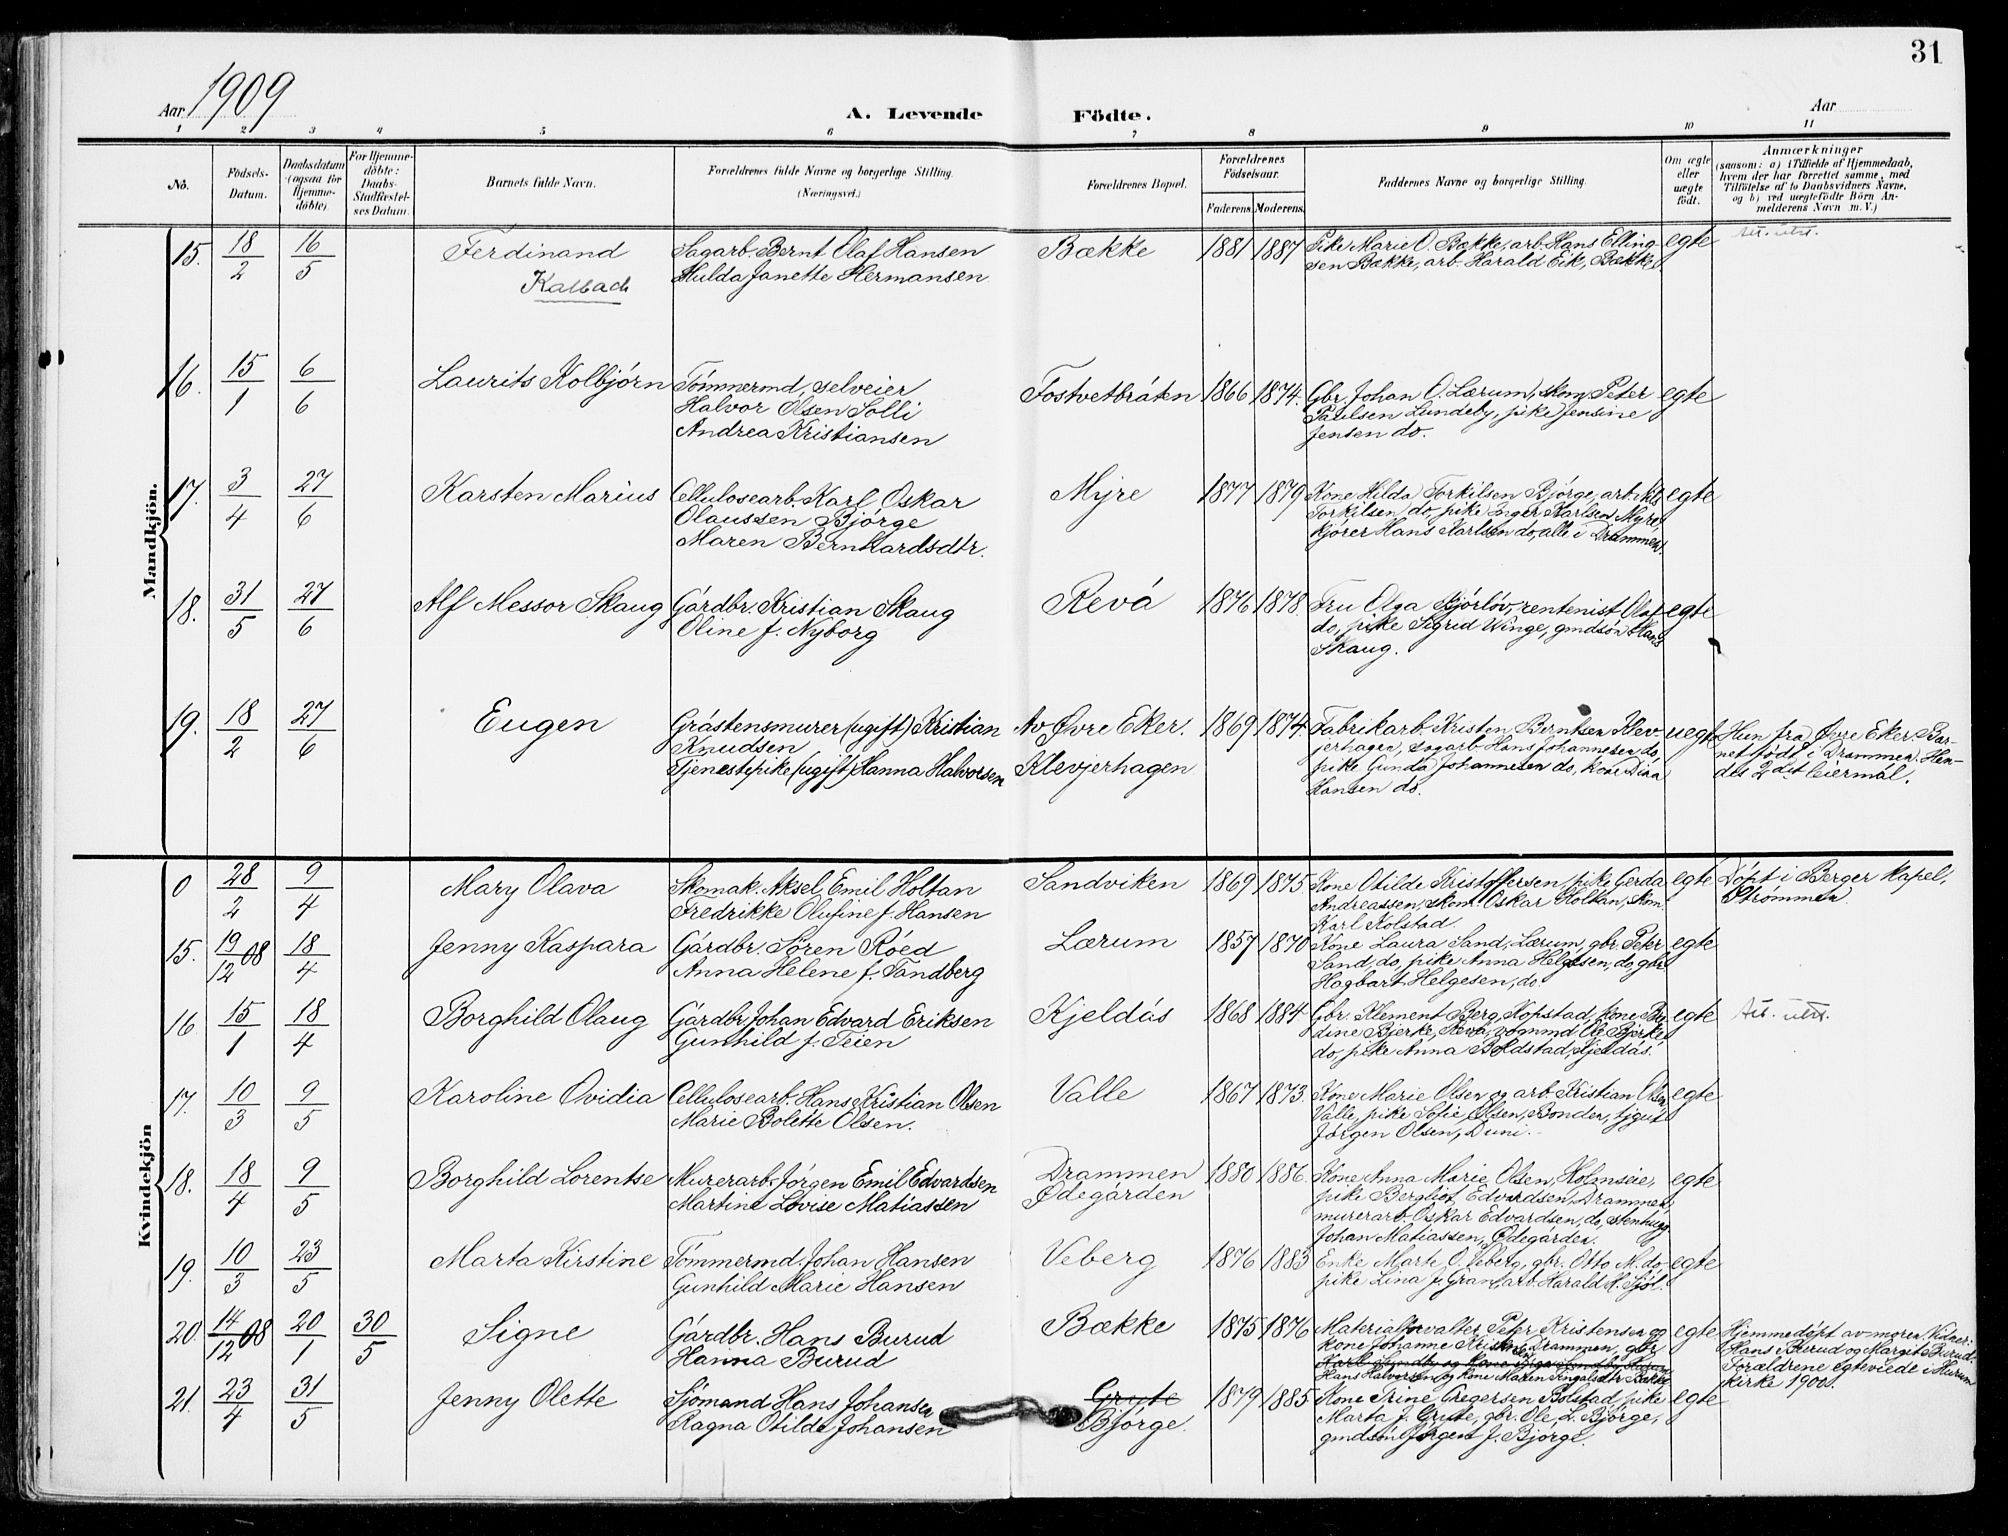 31
Aar 1909
A. Levende Födte.
Aar
1 2 3 4 5 6 7 8 9 10 11
No.
Födsels-Datum.
Daabsdatum (ogsaa for Hjemme-döbte).
For Hjemme-döbte: Daabs-Stadfæstel-ses Datum.
Barnets fulde Navn.
Forældrenes fulde Navne og borgerlige Stilling. (Næringsvei.)
Forældrenes Bopæl.
Forældrenes Födselsaar.
Faderens. Moderens.
Faddernes Navne og borgerlige Stilling.
Om ægte eller uægte födt.
Anmærkninger
(saasom: a) i Tilfælde af Hjemmedaab, hvem der har forrettet samme, med Tilföielse af to Daabsvidners Navne, og b) ved uægtefödte Börn An-melderens Navn m. V.)
Mandkjön.
15. 18/2 16/5 Ferdinand
Kalbach
Sagarb. Bernt Olaf Hansen
Hulda Janette Hermansen.
Bække 1881 1887
Pike Marie O. Bække, arb. Hans Elling-
sen Bække, arb. Harald Eik, Bække
egte
Att. utst.
16. 15/1 6/6 Laurits Kolbjörn
Tömmermd, selveier
Halvor Olsen Solli
Andrea Kristiansen
Fostvetbråten 1866 1874.
Gbr. Johan O. Lærum, skom. Peter
Paulsen Lundeby, pike Jensine
Jensen do.
egte
17. 3/4 27/6 Karsten Marius
Cellulosearb. Karl Oskar
Olaussen Bjórge
Maren Bernhardsdtr.
Myre 1877 1879
Kone Hilda Torkilsen Bjórge, arb.
Torkilsen do, pike Inger Karlsen Myre,
kjórer Hans Karlsen do, alle i Drammen.
egte
18. 31/5 27/6 Alf Messor Skaug
Gårdbr. Kristian Skaug
Oline f. Nyborg
Revå 1876 1878.
Fru Olga Kjórlöv, rentenist Olaf
do, pike Sigrid Winge, gmdsön Hans
Skaug.
egte
19. 18/2 27/6 Eugen
Gråstensmurer (ugift) Kristian
Knudsen
Tjenestepike (ugift) Hanna Halvorsen
Av Øvre Eker.
Klevjerhagen
1869 1874.
Fabrikarb. Kristen Berntsen Klev-
jerhagen, sagarb. Hans Johannesen do,
pike Gunda Johannesen do, kone Dina
Hansen do.
uegte
Hun fra Øvre Eker. Bar-
net födt i Drammen. Hen-
des 2det leiermål.
Kvindekjön
0 28/2 9/4 Mary Olava
Skomak. Aksel Emil Holtan
Fredrikke Olufine f. Hansen
Sandviken 1869 1875
Kone Otilde Kristoffersen, pike Gerda
Andreassen, skom. Oskar Holtan, skom.
Karl Kolstad.
egte
Döpt i Berger kapel,
Strömmen.
15. 19/12 08 18/4 Jenny Kaspara
Gårdbr. Sören Róed
Anna Helene f. Sandberg
Lærum 1857 1870
Kone Laura Sand, Lærum, gbr. Petr
Sand, do, pike Anna Helgesen, do, gbr.
Hagbart Helgesen, do.
egte
16 15/1 18/4 Borghild Olaug
Gårdbr. Johan Edvard Eriksen
Gunhild f. Teien
Kjeldås 1868 1884
Gbr. Klement Berg, Kopstad, kone Ber-
dine Bjerke, Revå, tömmd Ole Bjerke
do, pike Anna Boldstad, Kjeldås.
egte
Att. utst.
17. 10/3 9/5 Karoline Ovidia
Cellulosearb. Hans Kristian Olsen
Marie Bolette Olsen.
Valle 1867 1873.
Kone Marie Olsen og arb. Kristian Olsen
Valle, pike Sofie Olsen, Bonden, tjgut
Jórgen Olsen, Duni.
egte
18. 18/4 9/5 Borghild Lorentse
Murerarb. Jórgen Emil Edvardsen
Martine Lovise Matiassen
Drammen
Ødegården
1880 1886.
Kone Anna Marie Olsen, Holmseie,
pike Bergliot Edvardsen, Drammen,
murerarb. Oskar Edvardsen, do, stenhugg.
Johan Matiassen, Ødegården.
egte
19. 10/3 23/5 Marta Kirstine
Tömmermd. Johan Hansen
Gunhild Marie Hansen
Veberg 1876 1883
Enke Marte O. Veberg, gbr. Otto M. do,
pike Lina J. Gran, arb. Harald H. Sjöl.
egte
20. 14/12 08 20/1 30/5 Signe
Gårdbr. Hans Burud
Hanna Burud
Bække 1875 1876
Materialforvalter Petr Kristensen og
kone Johanne Kristensen, Drammen, gbr.
Hans Halvorsen og kone Maren Ingalsdtr Bække
egte
Hjemmedöpt av moren. Vidner:
Hans Burud og Margit Burud.
Forældrene egteviede i Hurum
kirke 1900.
21. 23/4 31/5 Jenny Olette
Sjómand Hans Johansen
Ragna Otilde Johansen
Gryte
Bjórge.
1879 1885
Kone Trine Gregersen Bolstad, pike
Marta J. Gryte, gbr. Ole L. Bjórge,
gmdsön Jórgen J. Bjórge.
egte